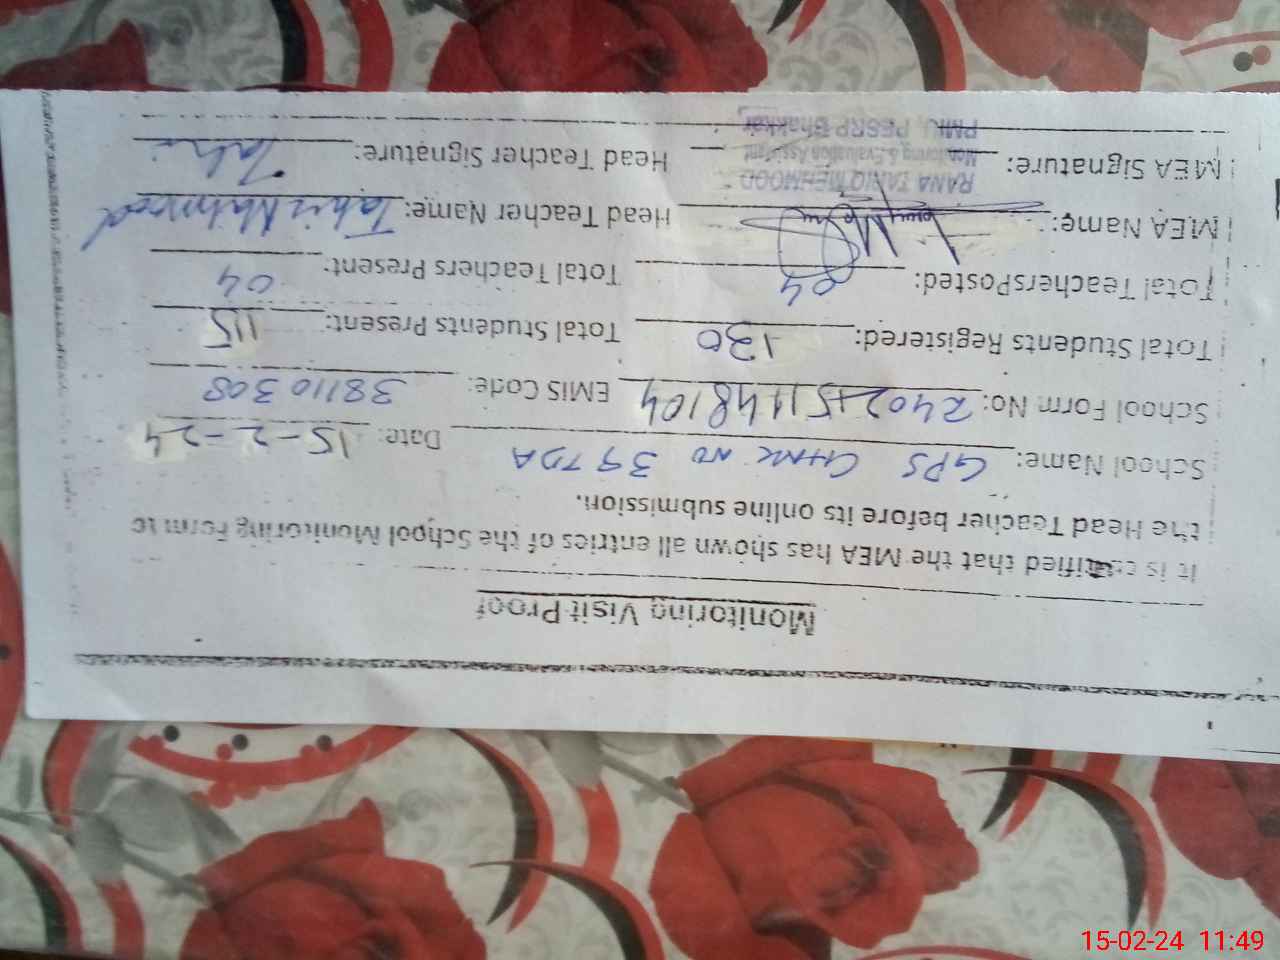 Monitoring Visit Proof
It is certified that the MEA has shown all entries of the School Monitoring Form to
the Head Teacher before its online submission.
School Name: GPS CHAK NO 39 TDA Date: 15-2-24
School Form No: 2402151148104 EMIS Code: 38110308
Total Students Registered: 130 Total Students Present: 115
Total TeachersPosted: 04 Total Teachers Present: 04
MEA Name: Head Teacher Name: Tahir Mahmood
MEA Signature: Head Teacher Signature: Tahir
RANA TARIQ MEHMOOD
Monitoring & Evaluation Assistant
PMIU, PESRP Bhakkar
15-02-24 11:49